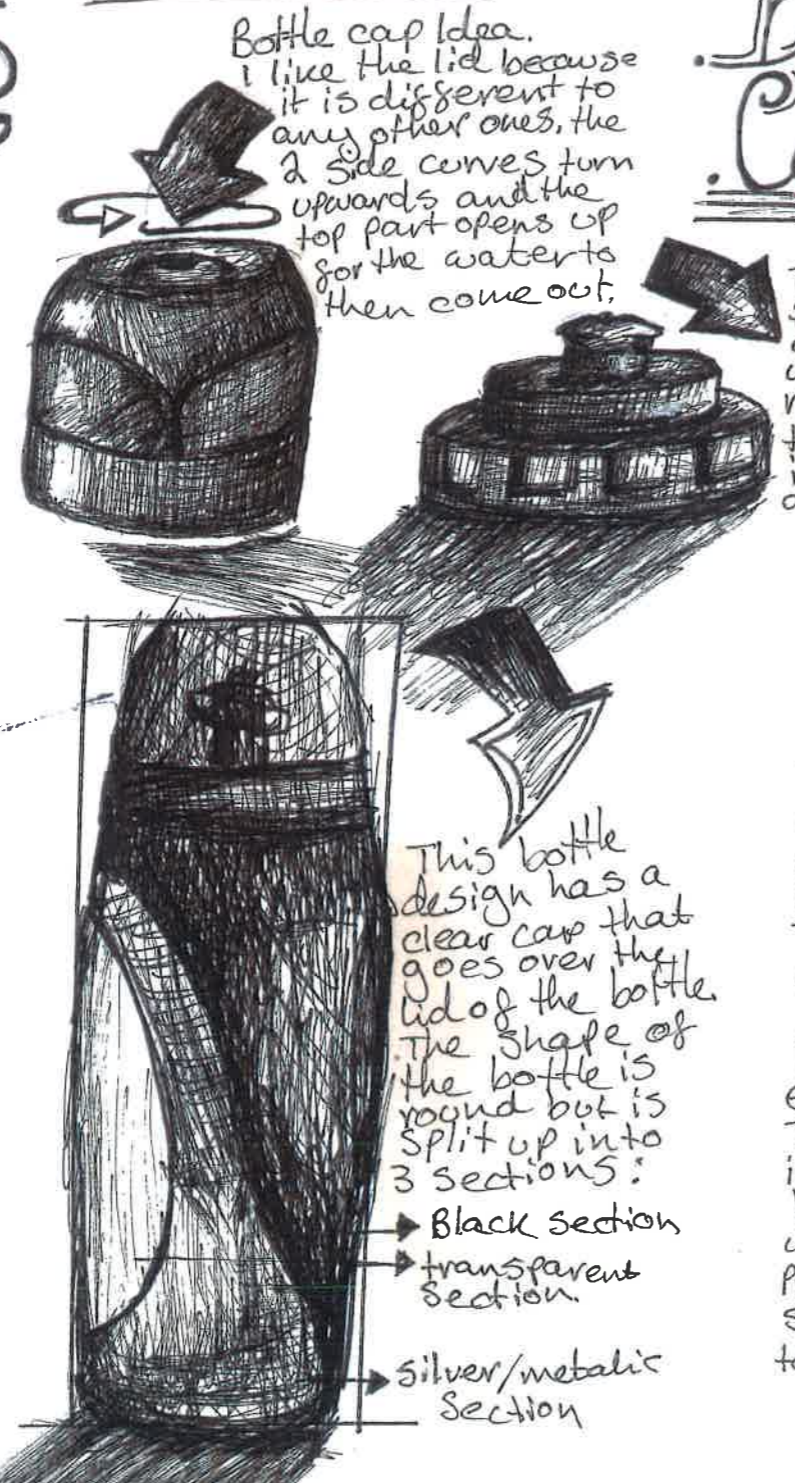 Bottle cap Idea.
I like the lid because
it is different to
any other ones, the
2 side curves turn
upwards and the
top part opens up
for the water to
then come out.
This bottle
design has a
clear cap that
goes over the
lid of the bottle.
The shape of
the bottle is
round but is
split up into
3 sections:
Black section
transparent
section.
silver/metalic
section